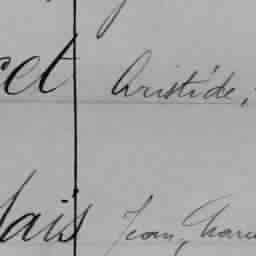 cet Aristide,
lais Jean, Marc